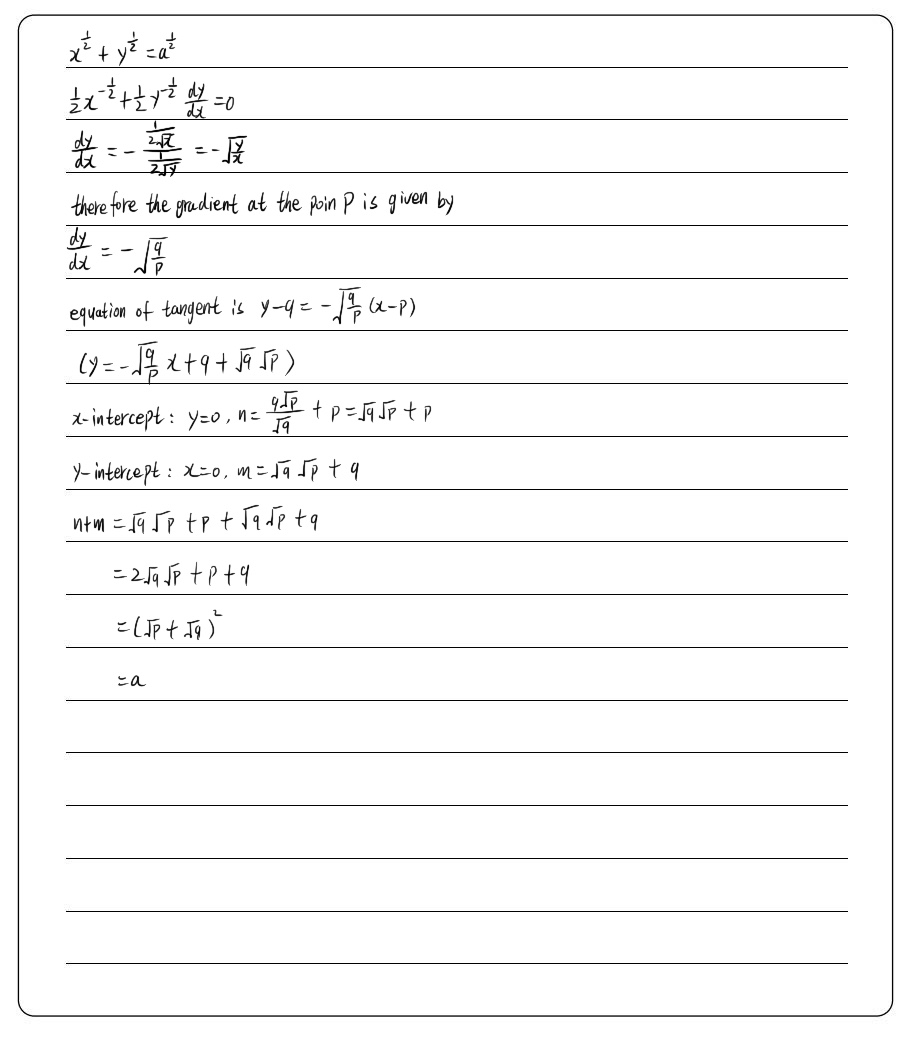 x^{1/2} + y^{1/2} = a^{1/2}
\frac{1}{2}x^{-1/2} + \frac{1}{2}y^{-1/2} \frac{dy}{dx} = 0
\frac{dy}{dx} = -\frac{\frac{1}{2\sqrt{x}}}{\frac{1}{2\sqrt{y}}} = -\sqrt{\frac{y}{x}}
therefore the gradient at the poin P is given by
\frac{dy}{dx} = -\sqrt{\frac{q}{p}}
equation of tangent is y-q = -\sqrt{\frac{q}{p}} (x-p)
(y = -\sqrt{\frac{q}{p}} x + q + \sqrt{q} \sqrt{p})
x-intercept: y=0, n = \frac{q\sqrt{p}}{\sqrt{q}} + p = \sqrt{q}\sqrt{p} + p
y-intercept: x=0, m = \sqrt{q}\sqrt{p} + q
n+m = \sqrt{q}\sqrt{p} + p + \sqrt{q}\sqrt{p} + q
= 2\sqrt{q}\sqrt{p} + p + q
= (\sqrt{p} + \sqrt{q})^2
= a